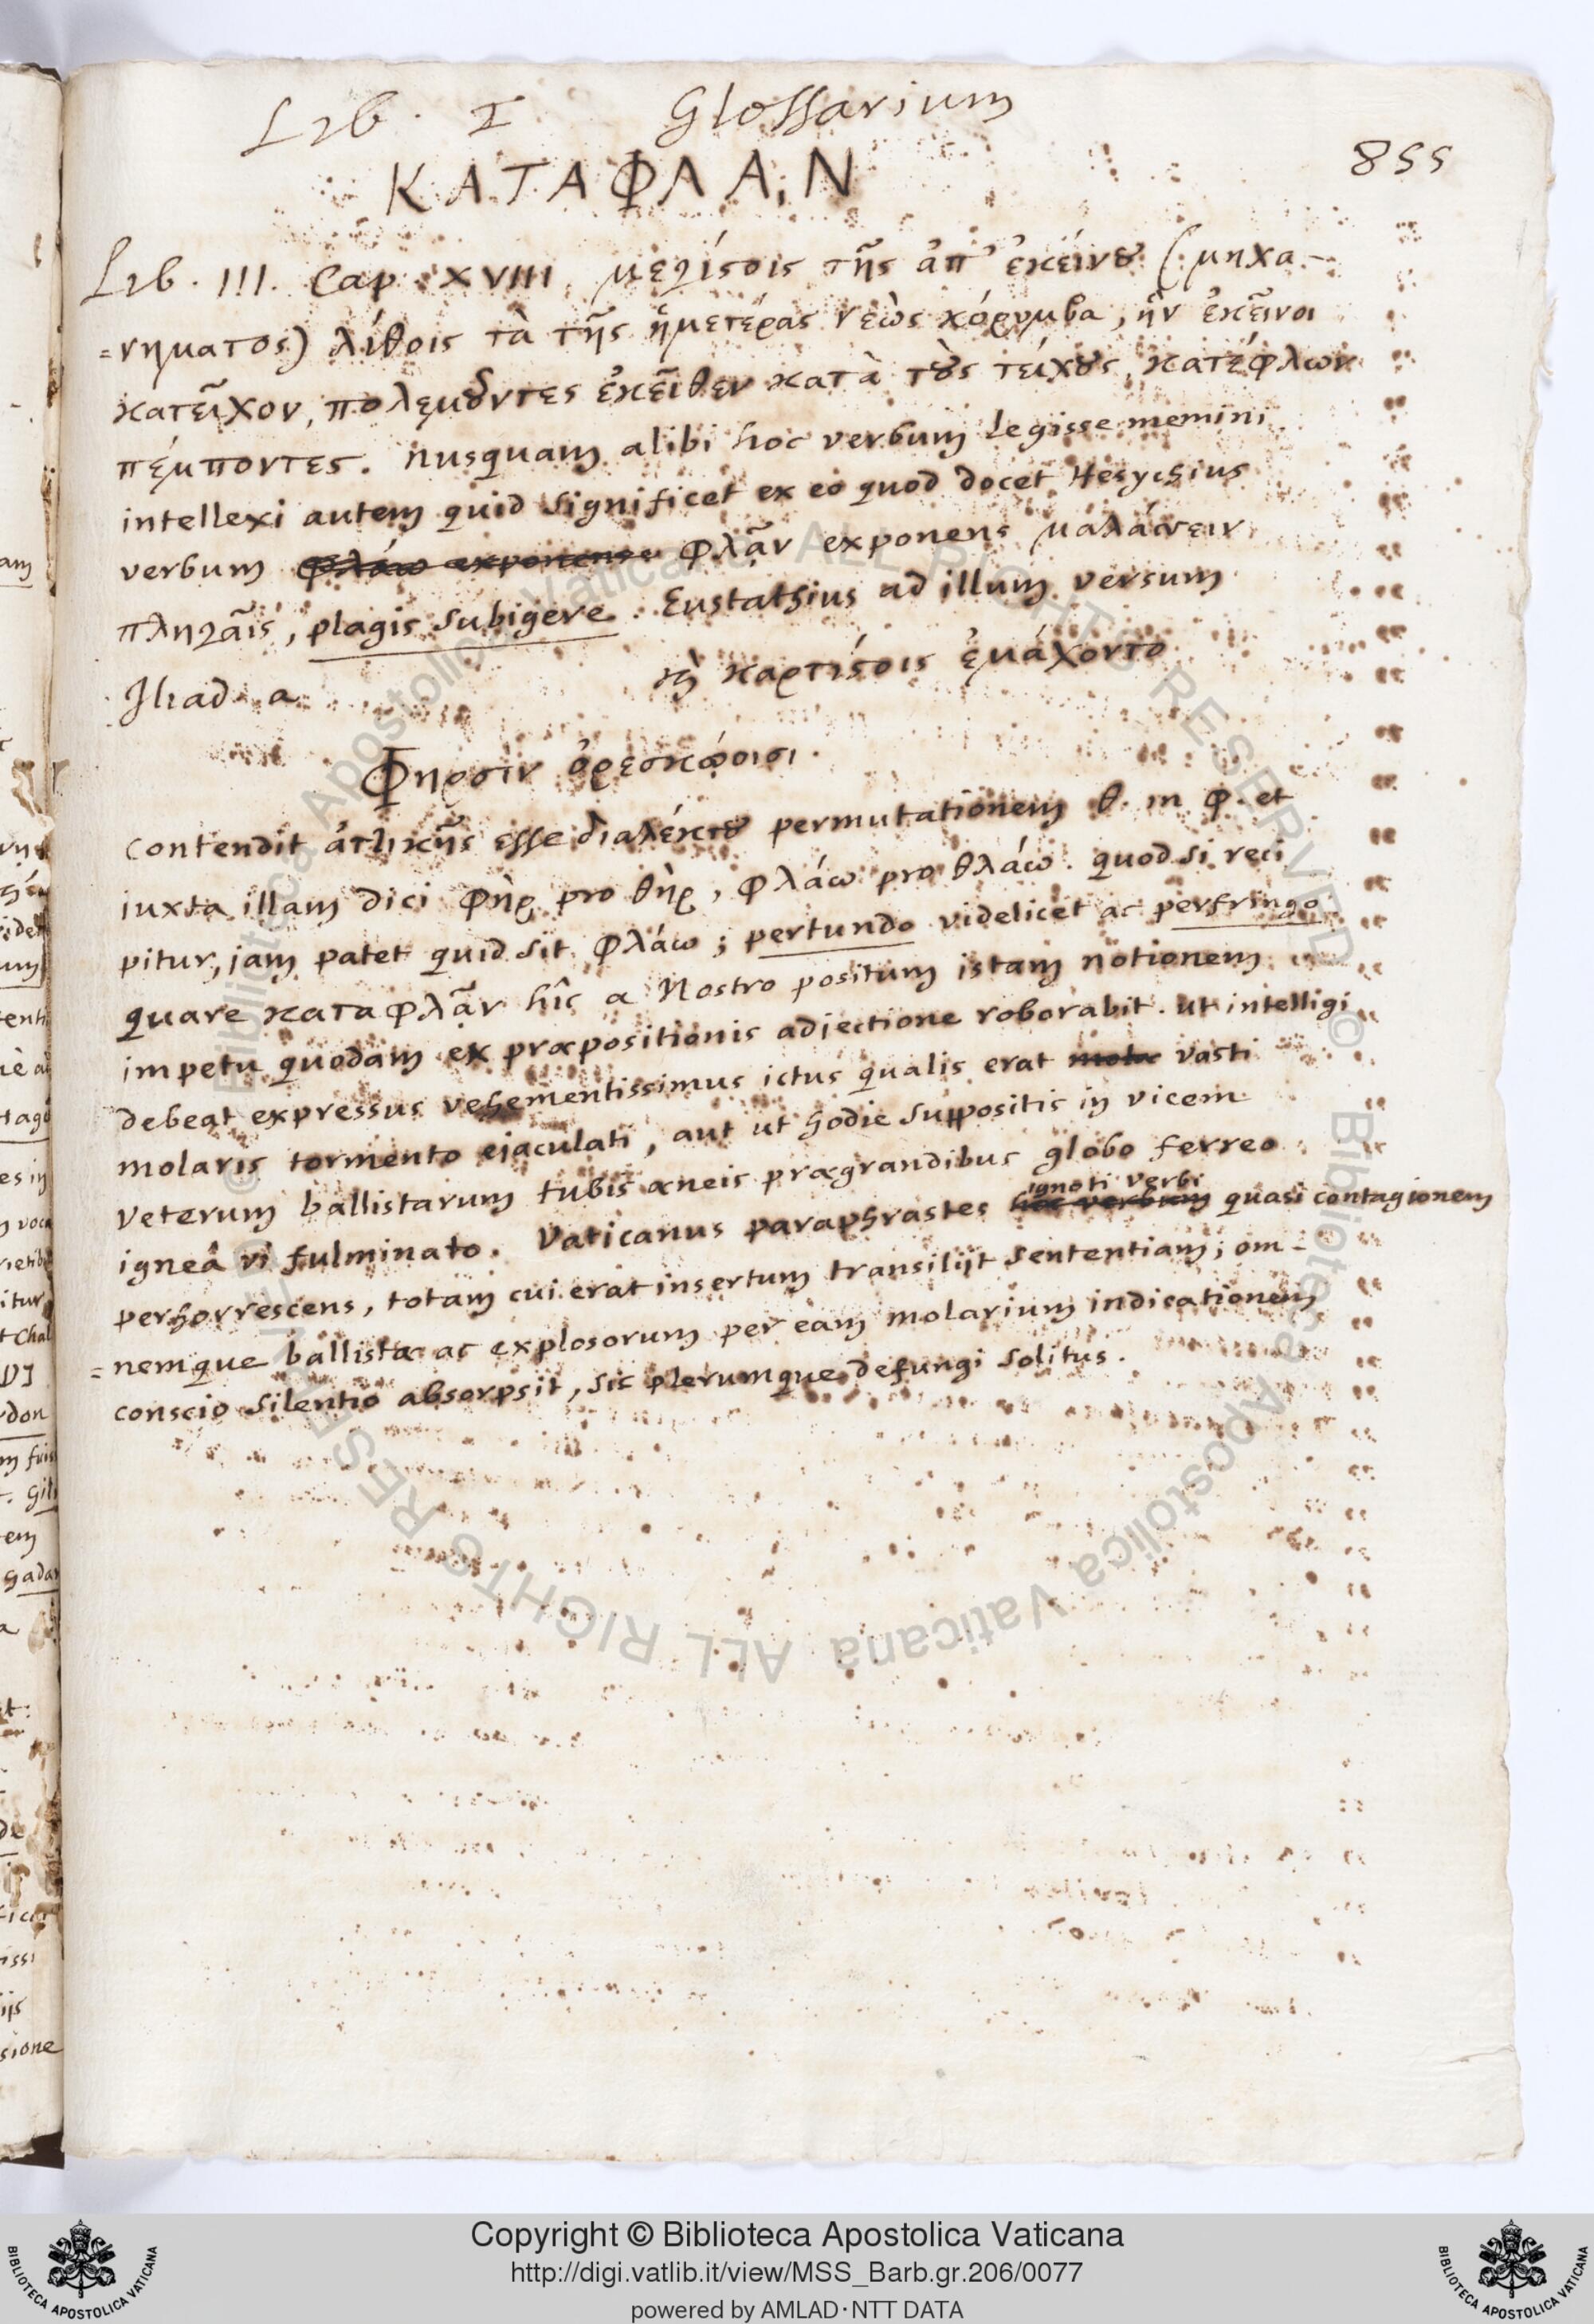 Lib. I Glossarium
855
ΚΑΤΑΦΛΑ͂Ν
Lib. III. Cap. XVIII. μεγίστοις τῆς ἀπ' ἐκείνου (μηχα-
=νηματος) λίθοις τὰ τῆς ἡμετέρας νεὼς κόρυμβα, ἣν ἐκεῖνοι
κατεῖχον, πολεμοῦντες ἐκεῖθεν κατὰ τοὺς τείχους, κατέφλων
πέμποντες. nusquam alibi hoc verbum legisse memini
intellexi autem quid significet ex eo quod docet Hesychius
verbum φλάω exponens φλᾶν exponens μαλάσσειν
πληγαῖς, plagis subigere. Eustathius ad illum versum
Iliad. α καὶ καρτίστοις ἐμάχοντο
Φηρσὶν ὀρεσκῴοισι.
contendit ἀττικῆς esse διαλέκτου permutationem θ. in φ. et
iuxta illam dici φὴρ pro θὴρ, φλάω pro θλάω. quod si reci
pitur, jam patet quid sit φλάω; pertundo videlicet ac perfringo
quare καταφλᾶν hîc a Nostro positum istam notionem
impetu quodam ex præpositionis adjectione roborabit. ut intelligi
debeat expressus vehementissimus ictus qualis erat molæ vasti
molaris tormento ejaculati, aut ut hodie suppositis in vicem
veterum ballistarum tubis æneis prægrandibus globo ferreo
igneâ vi fulminato. Vaticanus paraphrastes hoc verbum ignoti verbi quasi contagionem
perhorrescens, totam cui erat insertum transilijt sententiam; om-
=nemque ballistæ ac explosorum per eam molarium indicationem
conscio silentio absorpsit, sic plerumque defungi solitus.
© Biblioteca Apostolica Vaticana ALL RIGHTS RESERVED
© Biblioteca Apostolica Vaticana ALL RIGHTS RESERVED
Copyright © Biblioteca Apostolica Vaticana
http://digi.vatlib.it/view/MSS_Barb.gr.206/0077
powered by AMLAD·NTT DATA
BIBLIOTECA APOSTOLICA VATICANA
BIBLIOTECA APOSTOLICA VATICANA